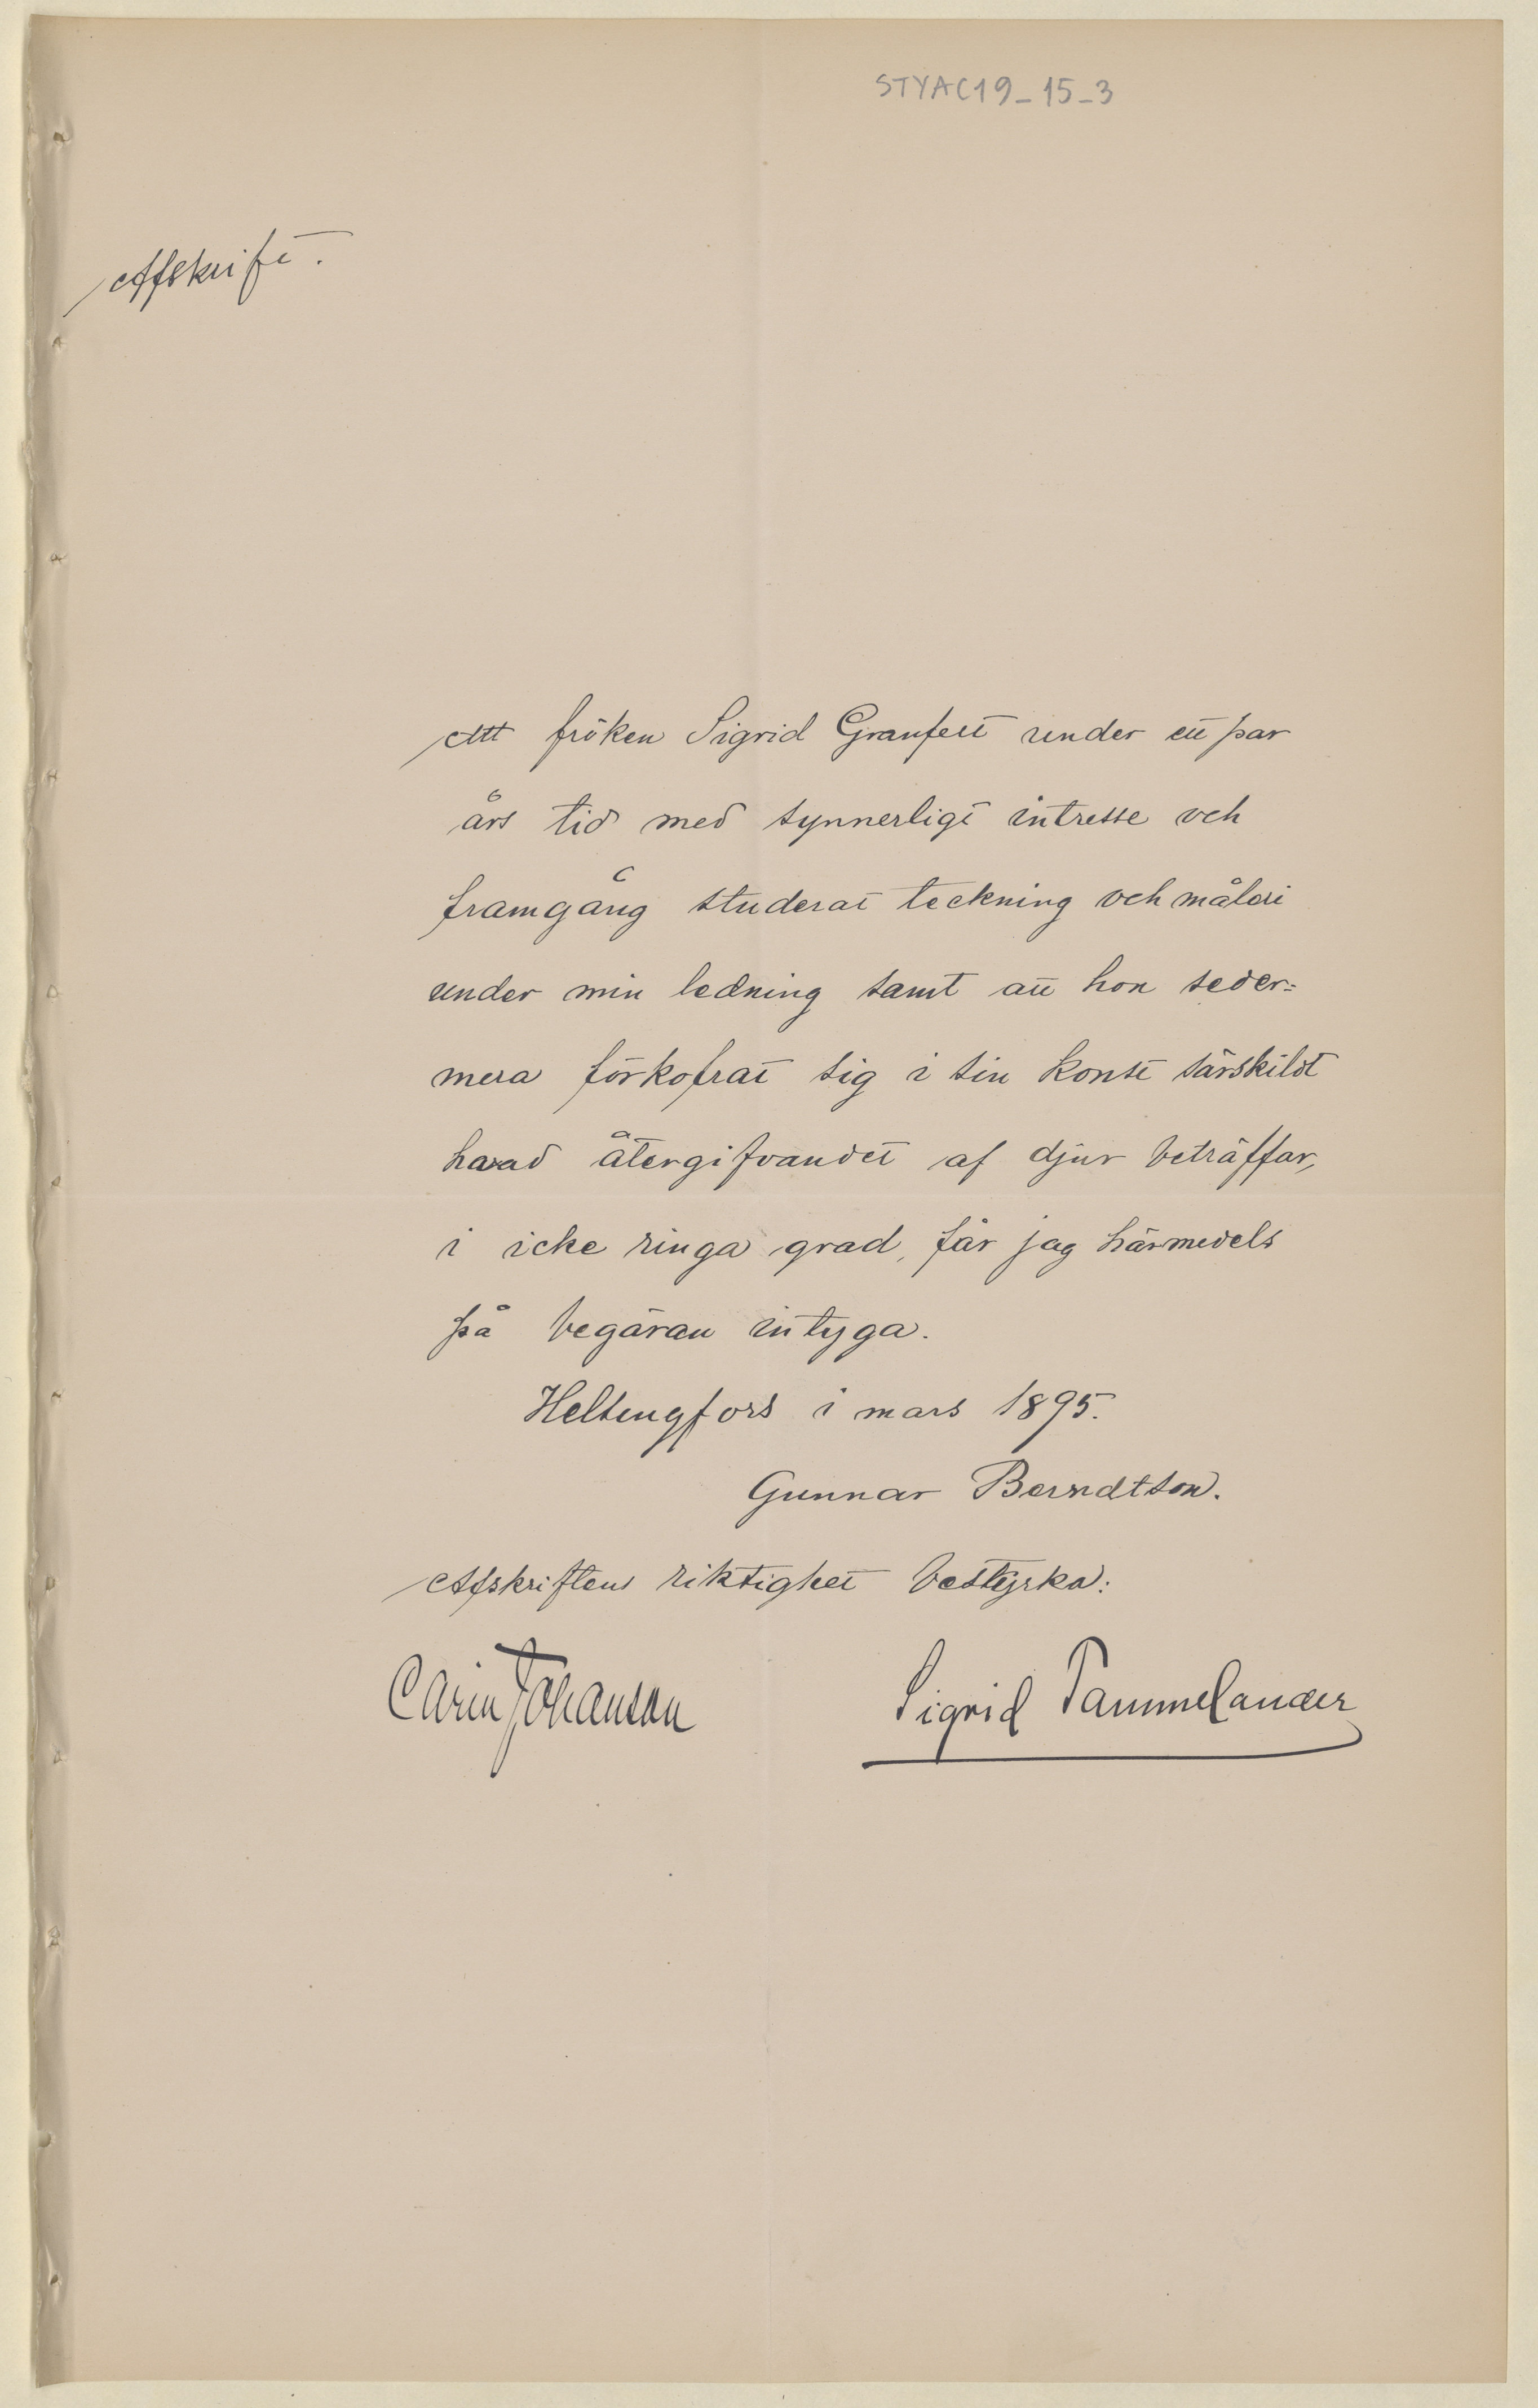 STYAC19_15_3
Afskrift.
Att fröken Sigrid Granfelt under ett par
års tid med synnerligt intresse och
framgång studerat teckning och måleri
under min ledning samt att hon seder=
mera förkofrat sig i sin konst särskildt
hvad återgifvandet af djur beträffar,
i icke ringa grad, får jag härmedels
på begäran intyga.
Helsingfors i mars 1895.
Gunnar Berndtson.
Afskriftens riktighet bestyrka:
Carin Johanson
Sigrid Tammelander